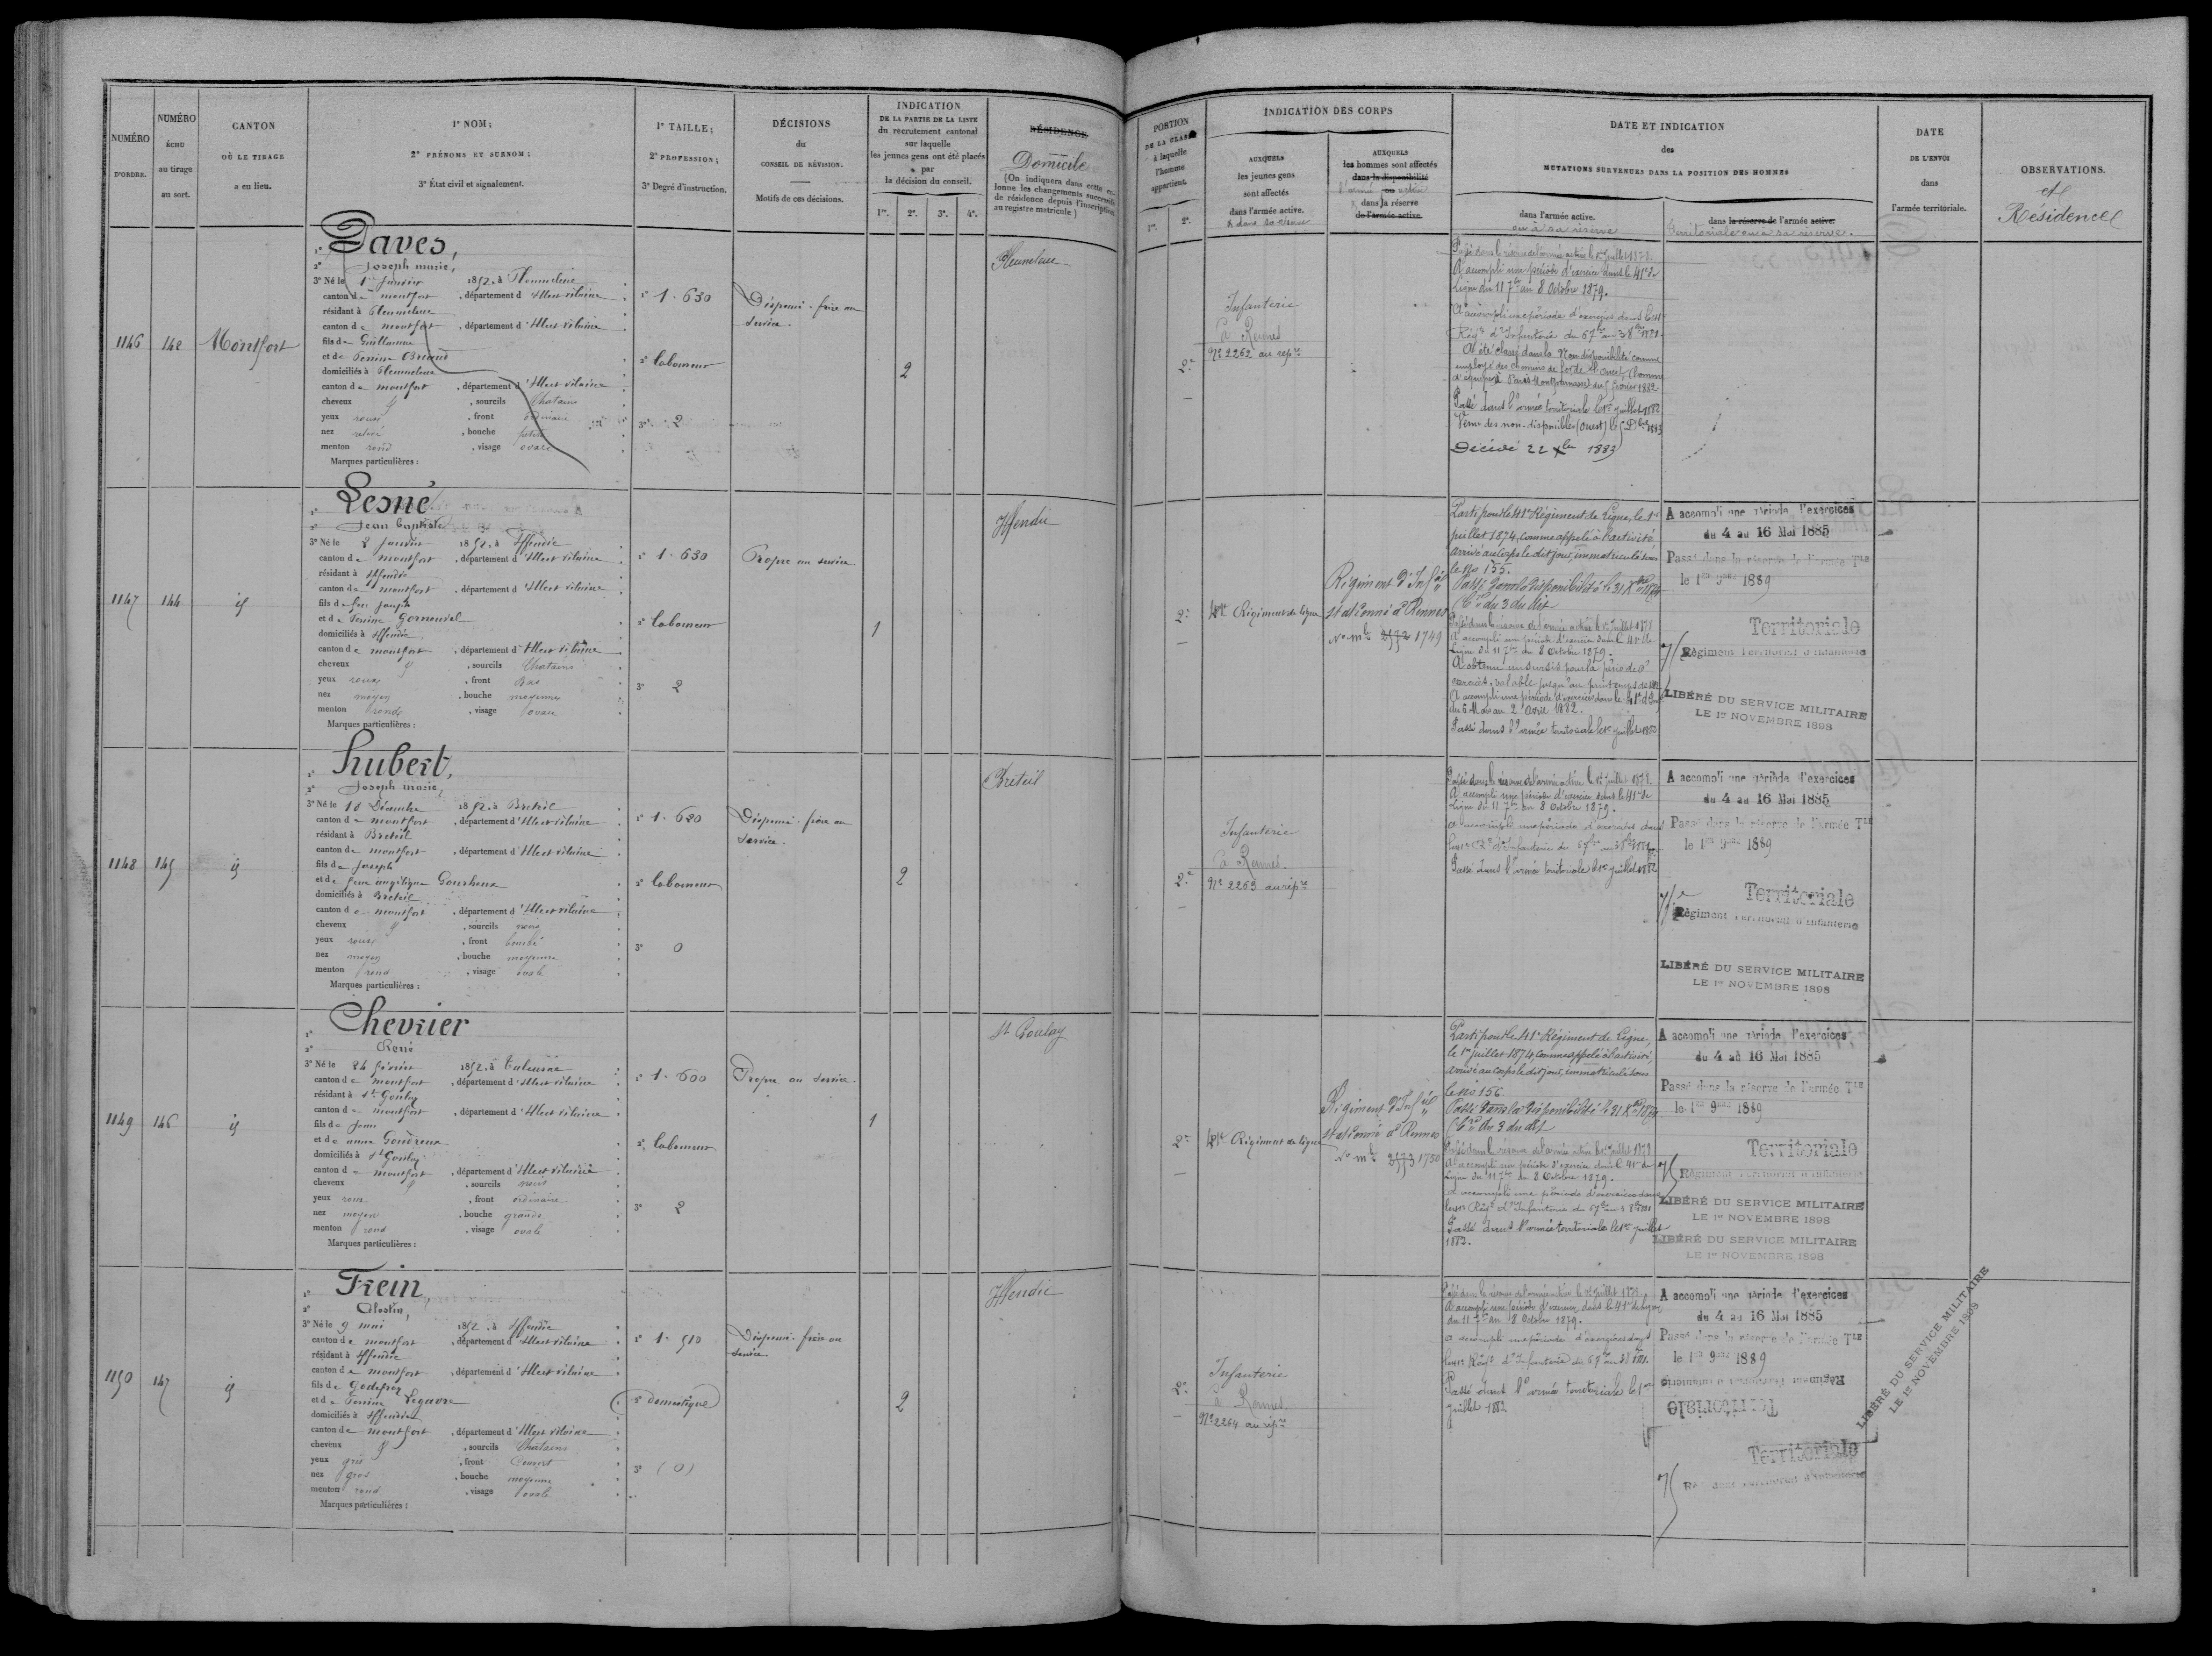 NUMÉRO
D'ORDRE.
NUMÉRO
ÉCHU
au tirage
au sort.
CANTON
OÙ LE TIRAGE
a eu lieu.
1º NOM;
2º PRÉNOMS ET SURNOM;
3º État civil et signalement.
1º TAILLE;
2º PROFESSION;
3º Degré d'instruction.
DÉCISIONS
du
CONSEIL DE RÉVISION.
Motifs de ces décisions.
INDICATION
DE LA PARTIE DE LA LISTE
du recrutement cantonal
sur laquelle
les jeunes gens ont été placés
par
la décision du conseil.
1re. 2e. 3e. 4e.
RÉSIDENCE
Domicile
(On indiquera dans cette co-
lonne les changements successifs
de résidence depuis l'inscription
au registre matricule.)
PORTION
DE LA CLASSE
à laquelle
l'homme
appartient.
1re. 2e.
INDICATION DES CORPS
AUXQUELS
les jeunes gens
sont affectés
dans l'armée active.
& dans sa réserve
AUXQUELS
les hommes sont affectés
dans la disponibilité
l'armée ou active
dans la réserve
de l'armée active.
DATE ET INDICATION
des
MUTATIONS SURVENUES DANS LA POSITION DES HOMMES
dans l'armée active.
ou à sa réserve
dans la réserve de l'armée active.
territoriale ou à sa réserve.
DATE
DE L'ENVOI
dans
l'armée territoriale.
OBSERVATIONS.
et
Résidence
1146
142
Montfort
1º Daves,
2º Joseph marie,
3º Né le 1er Janvier 1852, à Pleumeleuc
canton de montfort, département d'Ille et vilaine
résidant à Pleumeleuc
canton de montfort, département d'Ille et vilaine
fils de Guillaume
et de Perrine Briand
domiciliés à Pleumeleuc
canton de montfort, département d'Ille et vilaine
cheveux, sourcils Chatains
yeux roux, front ordinaire
nez relevé, bouche petite
menton rond, visage ovale
Marques particulières :
1º 1.630
2º laboureur
3º 2
Dispensé. frère au
service.
2
Pleumeleuc
2e
Infanterie
à Rennes
Nº 2262 au rép.re
Passé dans la réserve de l'armée active le 1er Juillet 1878.
A accompli une période d'exercice dans le 41e de
Ligne du 11 7bre au 8 Octobre 1879.
A accompli une période d'exercices dans le 41e
Régt d'Infanterie du 6 7bre au 3 8bre 1881.
A été classé dans la Non disponibilité comme
employé des chemins de fer de l'Ouest (homme
d'équipe à Paris Montparnasse) du 5 février 1882
Passé dans l'armée territoriale le 1er juillet 1882
Venu des non-disponibles (Ouest) le 5 Xbre 1883
Décédé 22 Xbre 1883
1147
144
id
1º Lesné
2º Jean baptiste
3º Né le 2 Janvier 1852, à Iffendic
canton de montfort, département d'Ille et vilaine
résidant à Iffendic
canton de montfort, département d'Ille et vilaine
fils de feu Joseph
et de Perrine Gernouvel
domiciliés à Iffendic
canton de montfort, département d'Ille et vilaine
cheveux, sourcils Chatains
yeux roux, front Bas
nez moyen, bouche moyenne
menton rond, visage ovale
Marques particulières :
1º 1.630
2º laboureur
3º 2
Propre au service.
1
Iffendic
2e
41e Régiment de ligne
Régiment d'Infie
stationné à Rennes
No mle 2572 1749
Parti pour le 41e Régiment de Ligne, le 1er
juillet 1874, comme appelé à l'activité
arrivé au Corps le dit jour, immatriculé sous
le No 155.
Passé dans la disponibilité le 31 Xbre 1874
Cre du 3 du dit
Passé dans la réserve de l'armée active le 1er Juillet 1878
A accompli une période d'exercice dans le 41e de
Ligne du 11 7bre au 8 Octobre 1879.
A obtenu un sursis pour la période d'
exercices, valable jusqu'au printemps de 1882
A accompli une période d'exercices dans le 41e d'Inf
du 6 Mars au 2 Avril 1882.
Passé dans l'armée territoriale le 1er juillet 1882
A accompli une période d'exercices
du 4 au 16 Mai 1885
Passé dans la réserve de l'armée Tle
le 1er 9bre 1889
Territoriale
75 Régiment Territorial d'Infanterie
LIBÉRÉ DU SERVICE MILITAIRE
LE 1er NOVEMBRE 1898
1148
145
id
1º Hubert,
2º Joseph marie,
3º Né le 18 Décembre 1852, à Breteil
canton de montfort, département d'Ille et vilaine
résidant à Breteil
canton de montfort, département d'Ille et vilaine
fils de Joseph
et de feue angélique Gourheux
domiciliés à Breteil
canton de montfort, département d'Ille et vilaine
cheveux, sourcils noirs
yeux roux, front bombé
nez moyen, bouche moyenne
menton rond, visage ovale
Marques particulières :
1º 1.620
2º laboureur
3º 0
Dispensé. frère au
service.
2
Breteil
2e
Infanterie
à Rennes.
Nº 2263 au rép.re
Passé dans la réserve de l'armée active le 1er juillet 1878
A accompli une période d'exercice dans le 41e de
Ligne du 11 7bre au 8 Octobre 1879.
A accompli une période d'exercices dans
le 41e Régt d'Infanterie du 6 7bre au 3 8bre 1881
Passé dans l'armée territoriale le 1er juillet 1882
A accompli une période d'exercices
du 4 au 16 Mai 1885
Passé dans la réserve de l'armée Tle
le 1er 9bre 1889
Territoriale
75e Régiment Territorial d'Infanterie
LIBÉRÉ DU SERVICE MILITAIRE
LE 1er NOVEMBRE 1898
1149
146
id
1º Chevrier
2º René
3º Né le 24 février 1852, à Talensac
canton de montfort, département d'Ille et vilaine
résidant à St Gonlay
canton de montfort, département d'Ille et vilaine
fils de Jean
et de anne Gendreux
domiciliés à St Gonlay
canton de montfort, département d'Ille et vilaine
cheveux, sourcils noirs
yeux roux, front ordinaire
nez moyen, bouche grande
menton rond, visage ovale
Marques particulières :
1º 1.600
2º laboureur
3º 2
Propre au service.
1
St Gonlay
2e
41e Régiment de ligne
Régiment d'Infie
stationné à Rennes
No mle 2573 1750
Parti pour le 41e Régiment de Ligne,
le 1er juillet 1874, comme appelé à l'activité,
arrivé au corps le dit jour, immatriculé sous
le No 156.
Passé dans la disponibilité le 31 Xbre 1874
Cre du 3 du dit
Passé dans la réserve de l'armée active le 1er juillet 1878
A accompli une période d'exercice dans le 41e de
Ligne du 11 7bre au 8 Octobre 1879.
A accompli une période d'exercices dans
le 41e Régt d'Infanterie du 6 7bre au 3 8bre 1881
Passé dans l'armée territoriale le 1er juillet
1882.
A accompli une période d'exercices
du 4 au 16 Mai 1885
Passé dans la réserve de l'armée Tle
le 1er 9bre 1889
Territoriale
75 Régiment Territorial d'Infanterie
LIBÉRÉ DU SERVICE MILITAIRE
LE 1er NOVEMBRE 1898
LIBÉRÉ DU SERVICE MILITAIRE
LE 1er NOVEMBRE 1898
1150
147
id
1º Frein,
2º Célestin,
3º Né le 9 mai 1852, à Iffendic
canton de montfort, département d'Ille et vilaine
résidant à Iffendic
canton de montfort, département d'Ille et vilaine
fils de Godefroy
et de Perrine Legavre
domiciliés à Iffendic
canton de montfort, département d'Ille et vilaine
cheveux, sourcils Chatains
yeux gris, front Couvert
nez gros, bouche moyenne
menton rond, visage ovale
Marques particulières :
1º 1.510
2º domestique
3º (0)
Dispensé. frère au
service.
2
Iffendic
2e
Infanterie
à Rennes.
Nº 2264 au rép.re
Passé dans la réserve de l'armée active le 1er Juillet 1878.
A accompli une période d'exercice dans le 41e de ligne
du 11 7bre au 8 Octobre 1879.
A accompli une période d'exercices dans
le 41e Régt d'Infanterie du 6 7bre au 3 8bre 1881.
Passé dans l'armée territoriale le 1er
juillet 1882
A accompli une période d'exercices
du 4 au 16 Mai 1885
Passé dans la réserve de l'armée Tle
le 1er 9bre 1889
Régiment Territorial d'Infanterie
Territoriale
Territoriale
75 Régiment Territorial d'Infanterie
LIBÉRÉ DU SERVICE MILITAIRE
LE 1er NOVEMBRE 1898